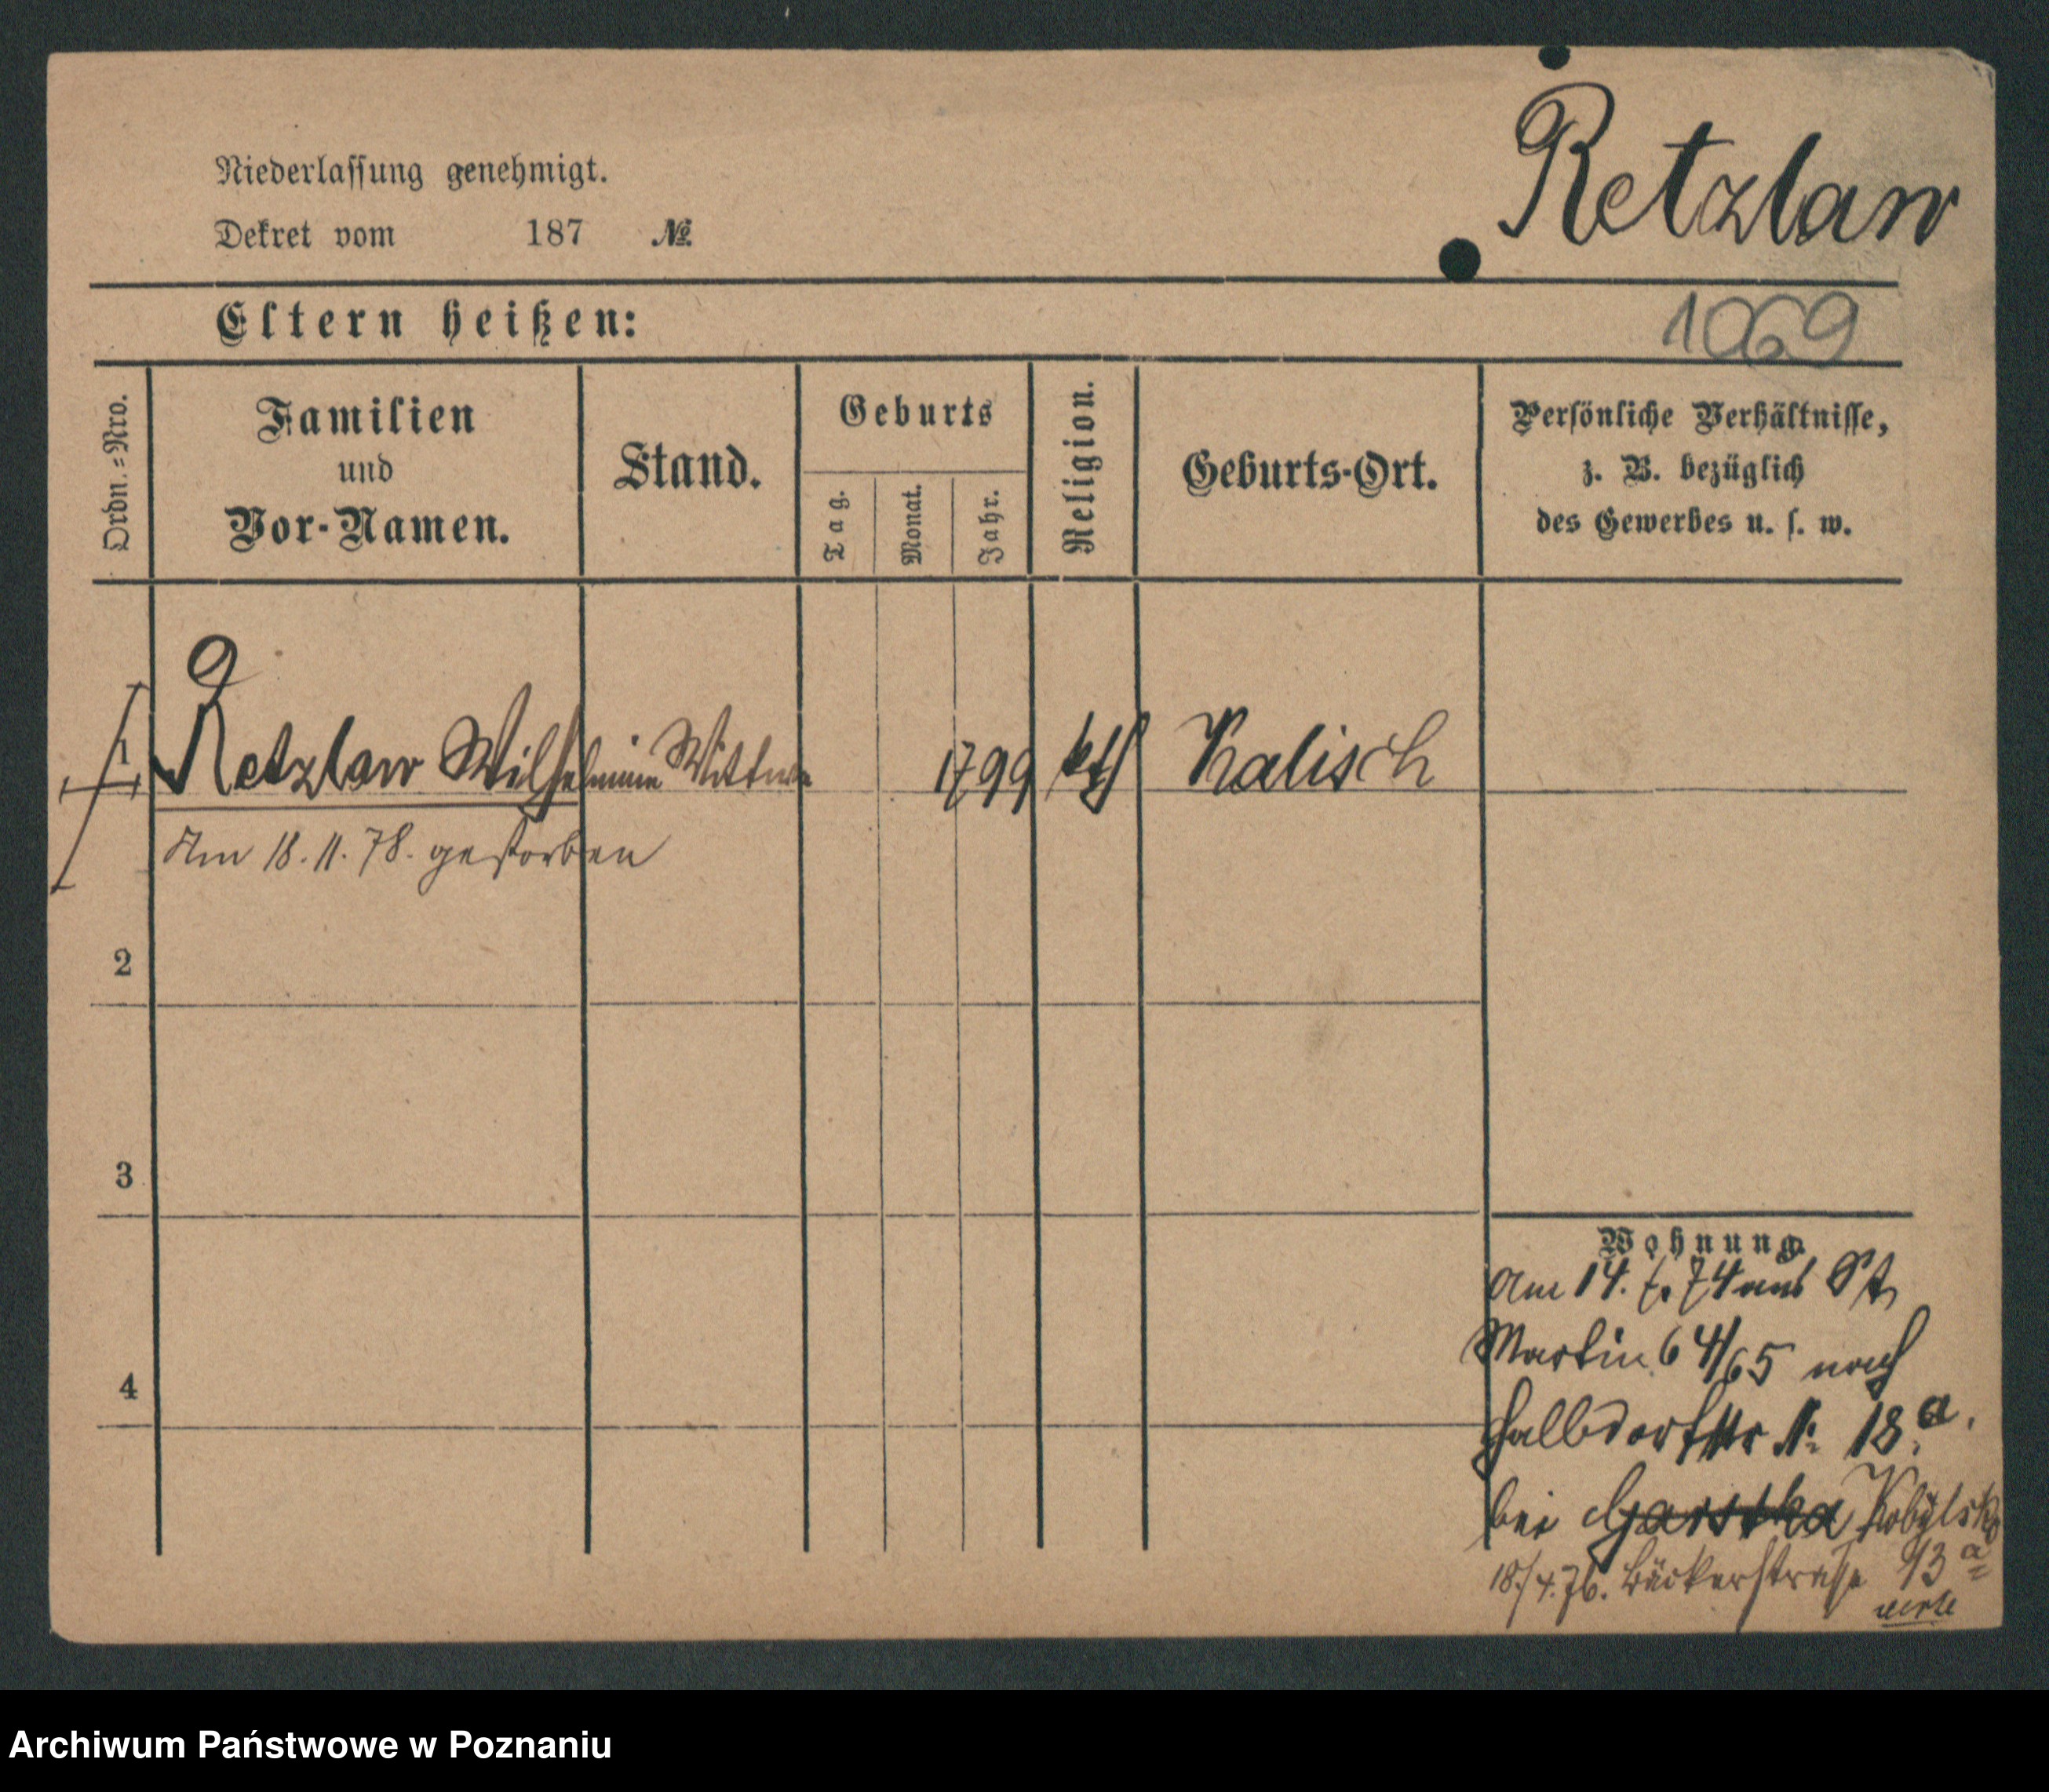 Retzlaw
Niederlassung genehmigt.
Dekret vom 187 №
Eltern heißen:
1069
Ordn.=Nro.
Familien
und
Vor-Namen.
Stand.
Geburts
Tag.
Monat.
Jahr.
Religion.
Geburts-Ort.
Persönliche Verhältnisse,
z. B. bezüglich
des Gewerbes u. s. w.
1 Retzlaw Wilhelmine Wittwe 1799 kth Kalisch
Am 18. 11. 78. gestorben
2
3
4
Wohnung.
Am 14. 74 aus St
Martin 64/65 nach
Halbdorfstr № 18a.
bei Garstka Kobylski
18/4.76. Bäckerstraße 13a
verte
Archiwum Państwowe w Poznaniu